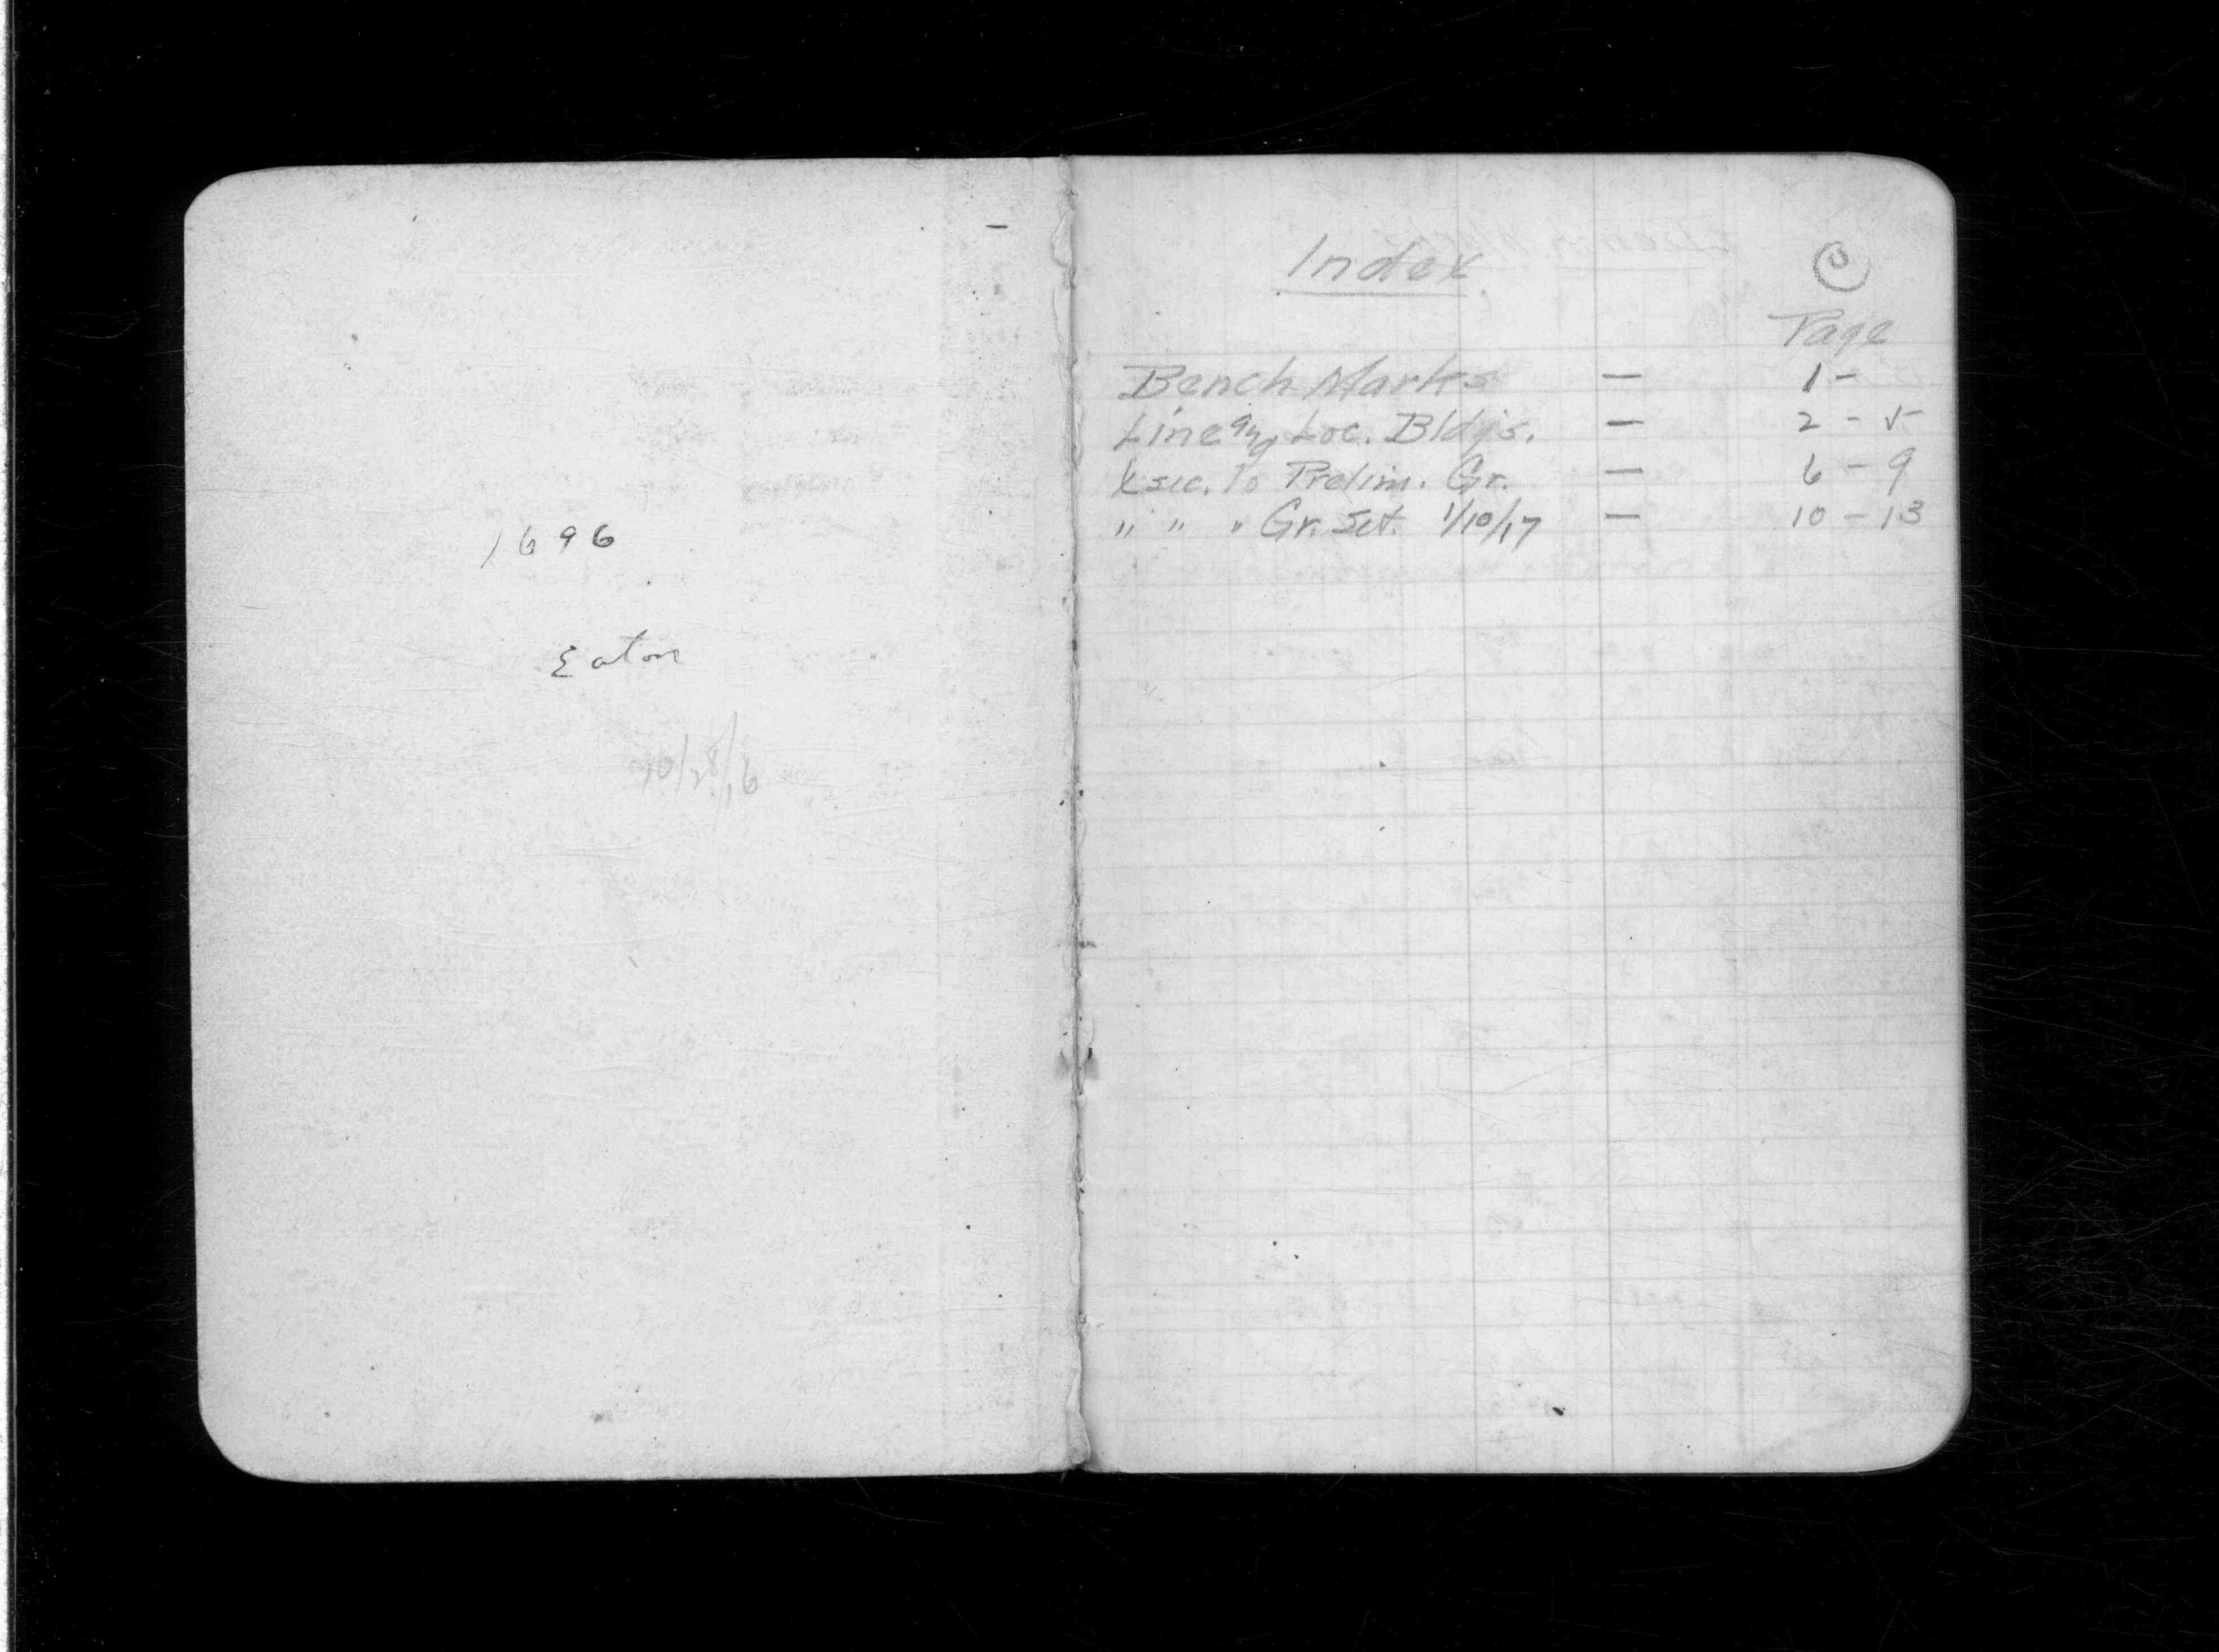 1696
Eaton
10/28/16
Index
0
Page
Bench Marks — 1 -
Line and Loc. Bldgs. — 2 - 5
Xsec. To Prelim. Gr. — 6 - 9
" " " Gr. Set. 1/10/17 — 10 - 13